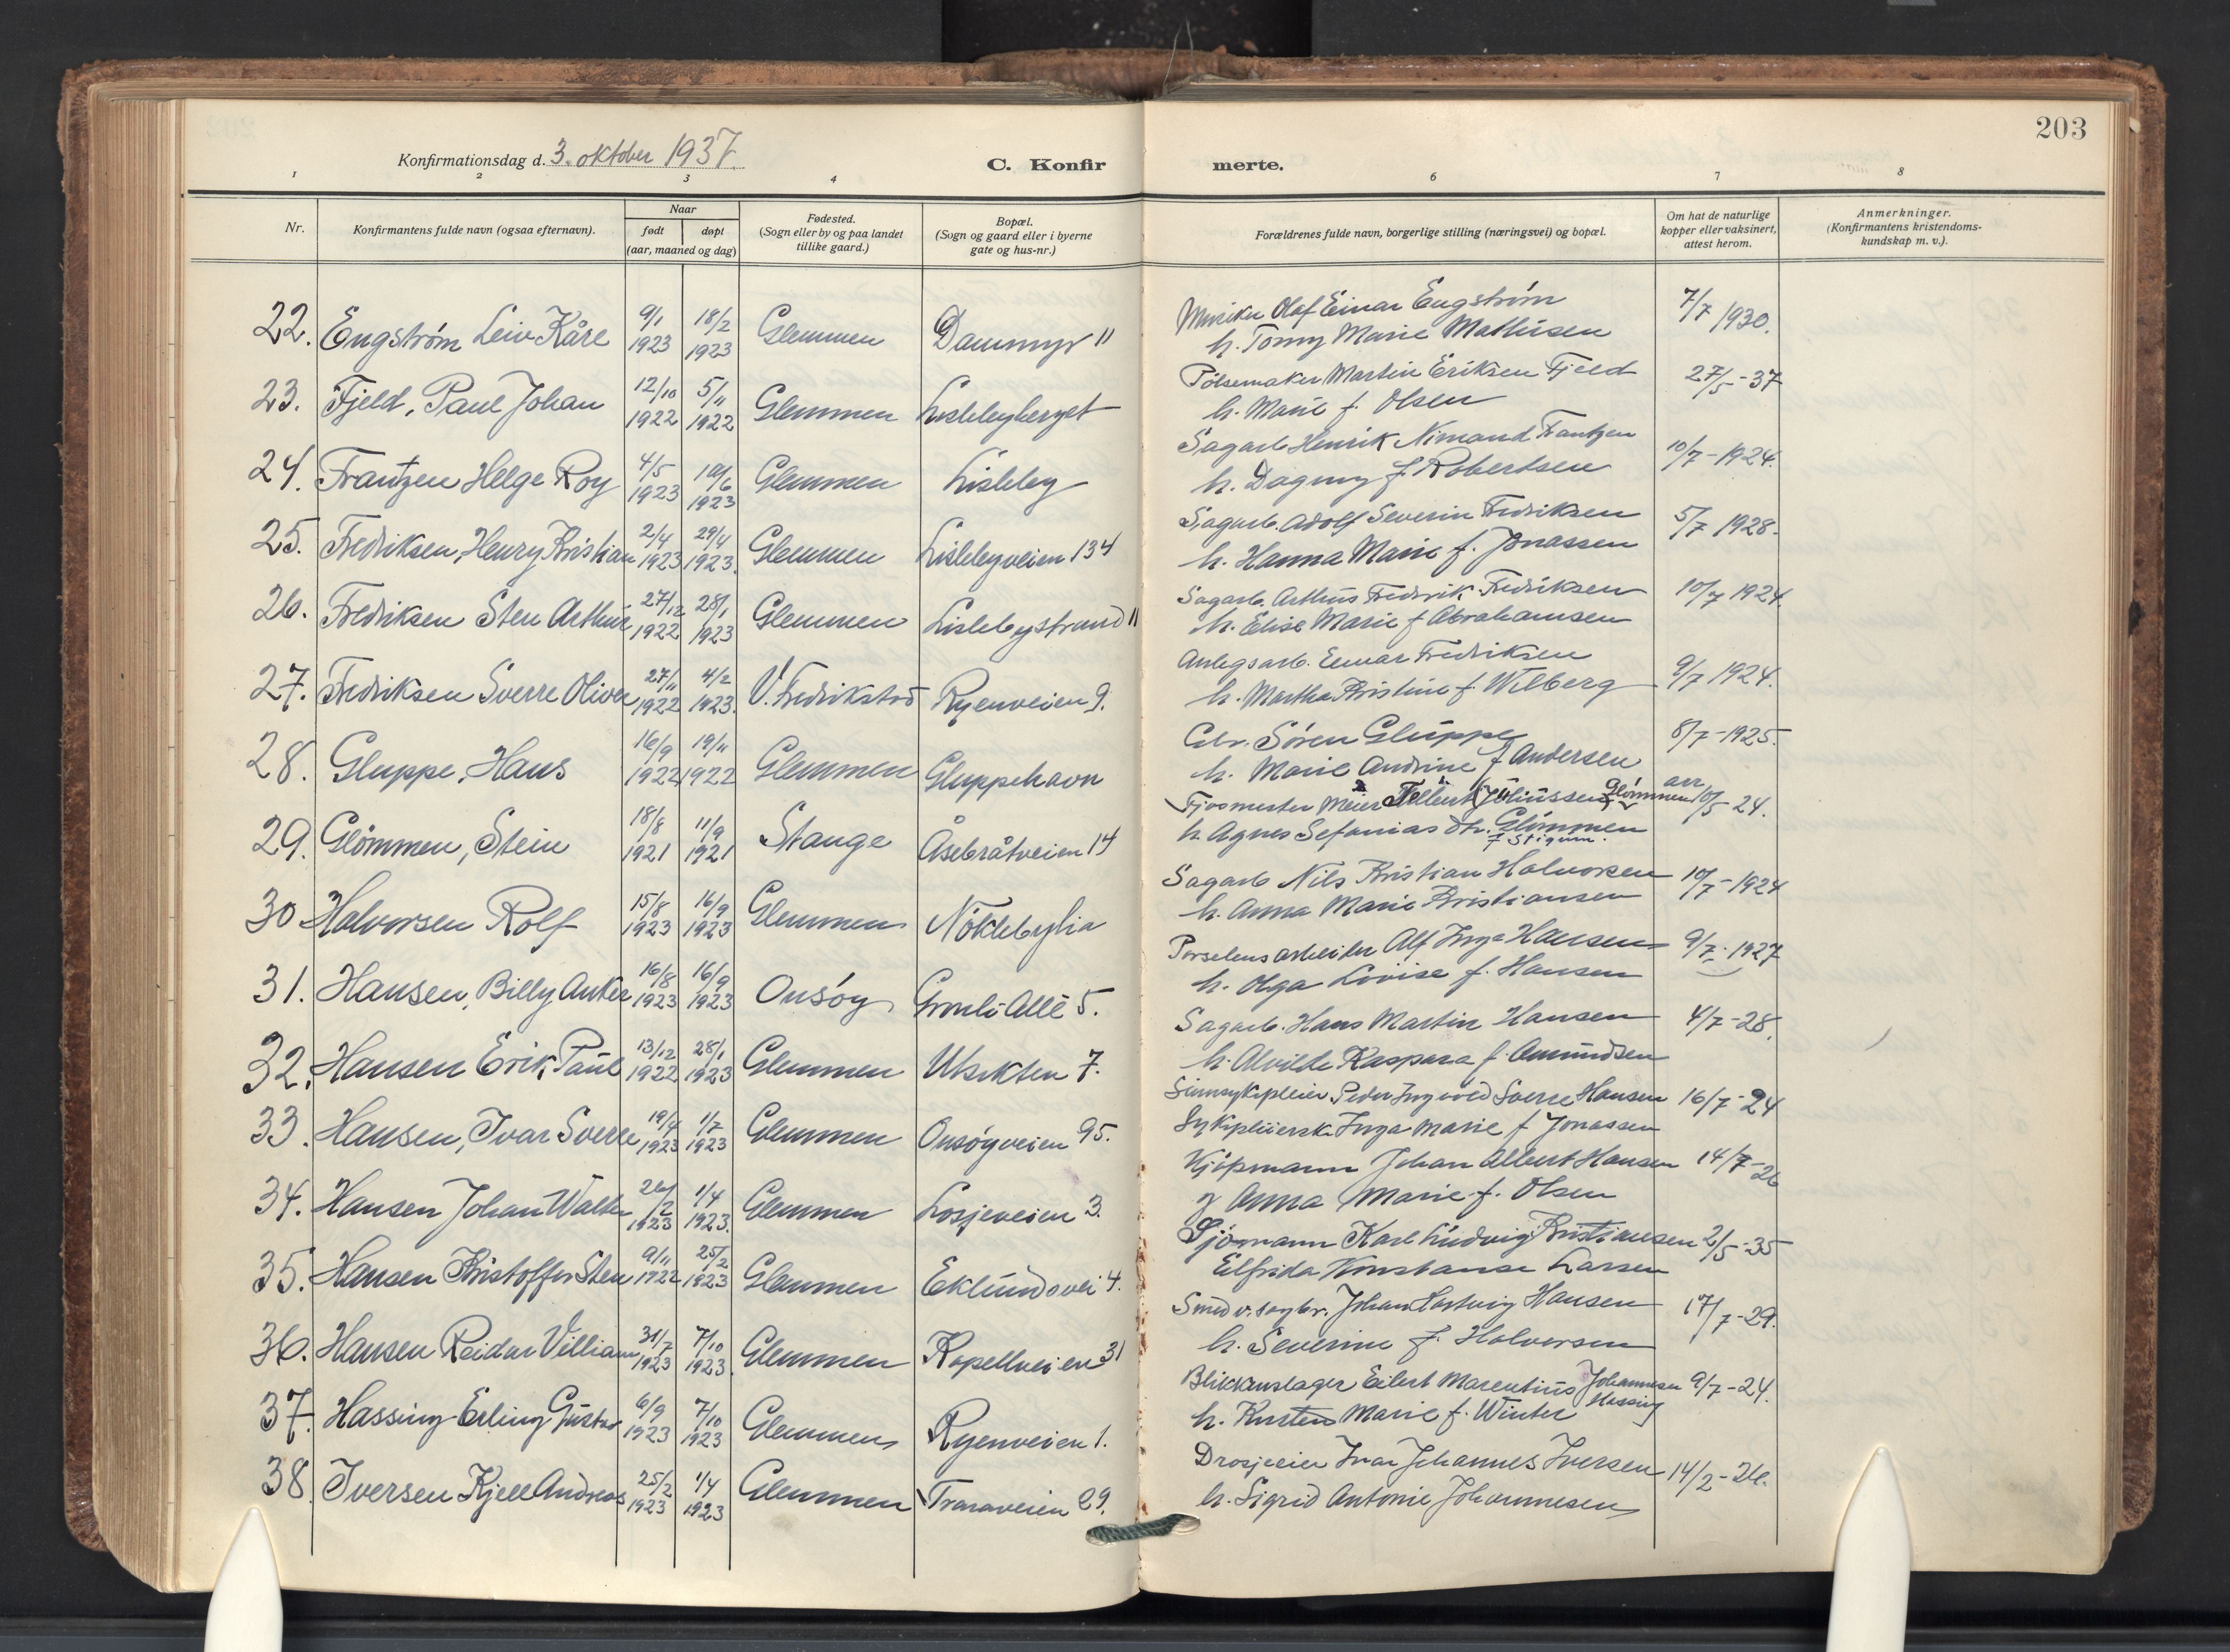 203
Konfirmationsdag d. 3. oktober 1937.
C. Konfir merte.
1 2 3 4 6 7 8
Nr.
Konfirmantens fulde navn (ogsaa efternavn).
Naar
født døpt
(aar, maaned og dag)
Fødested.
(Sogn eller by og paa landet
tillike gaard.)
Bopæl.
(Sogn og gaard eller i byerne
gate og hus-nr.)
Forældrenes fulde navn, borgerlige stilling (næringsvei) og bopæl.
Om hat de naturlige
kopper eller vaksinert,
attest herom.
Anmerkninger.
(Konfirmantens kristendoms-
kundskap m. v.).
22. Engstrøm Leiv Kåre 9/1 1923 18/2 1923 Glemmen Dammyr 11
Olaf Einar Engstrøm
h. Tomy Marie Mathisen
7/7 1930.
23. Fjeld, Paul Johan 12/10 1922 5/11 1922 Glemmen Lislebyberget
Pölsemaker Martin Eriksen Fjeld
h. Marie f. Olsen
27/5-37
24. Frantzen Helge Roy 4/5 1923 10/6 1923 Glemmen Lisleby
Sagarb. Henrik Nimand Frantzen
h. Dagny f Robertsen
10/7-1924.
25. Fredriksen, Henry Kristian 2/4 1923 29/4 1923. Glemmen Lislebyveien 134
Sagarb. Adolf Severin Fredriksen
h. Hanna Marie f. Jonassen
5/7 1928.
26. Fredriksen Sten Arthur 27/12 1922 28/1 1923 Glemmen Lislebystrand 11
Sagarb. Arthur Fredrik Fredriksen
h. Elise Marie f Abrahamsen
10/7 1924.
27. Fredriksen Sverre Oliver 27/11 1922 4/2 1923. V. Fredrikstad Ryenveien 9.
Anlegsarb. Einar Fredriksen
h. Martha Kristine f. Wilberg
9/7 1924.
28. Gluppe, Hans 16/9 1922 19/11 1922 Glemmen Gluppehavn
Gbr. Sören Gluppe
h. Marie Andrine f Andersen
8/7-1925.
29. Glömmen, Stein 18/8 1921 11/9 1921 Stange Åsebråtveien 14
Fjøsmester Meier Juliussen Glömmen
h Agnes Sefanias dtr. Glömmen
f Stigum.
arr 10/5-24.
30 Halvorsen Rolf 15/8 1923 16/9 1923 Glemmen Nöklebylia
Sagarb Nils Kristian Halvorsen
h. Anna Marie Kristiansen
10/7-1924
31. Hansen, Billy Anker 16/8 1923 16/9 1923 Onsöy Gronli Allé 5.
Porselensarbeider Alf Inga Hansen
h. Olga Lovise f. Hansen
9/7. 1927
32. Hansen Erik Paul 13/12 1922 28/1 1923 Glemmen Utsikten 7.
Sagarb. Hans Martin Hansen
h. Alvilde Kaspara f. Amundsen
4/7-28.
33. Hansen, Ivar Sverre 19/4 1923 1/7 1923 Glemmen Onsöyveien 95.
Sinnsykepleier Peder Ingvald Sverre Hansen
Sykepleierske Inga Marie f Jonassen
16/7-24
34. Hansen Johan Walter 26/2 1923 1/4 1923. Glemmen Losjeveien 3.
Kjöpmann Johan Albert Hansen
g Anna Marie f. Olsen
14/7-26
35. Hansen Kristoffer Sten 9/11 1922 25/2 1923 Glemmen Eklundsvei 4.
Sjömann Karl Ludvig Kristiansen
Elfrida Konstanse Larsen
2/5-35
36. Hansen Reidar Villiam 31/7 1923 7/10 1923. Glemmen Kapellveien 31
Smed v. sagbr. Johan Hartvig Hansen
h. Severine f. Halvorsen
17/7-29.
37. Hassing Erling Gustav 6/9 1923 7/10 1923 Glemmen Ryenveien 1.
Blikkenslager Eilert Marentius Johannesen Hassing
h. Kirsten Marie f. Winter
9/7-24.
38. Iversen Kjell Andreas 25/2 1923 1/4 1923 Glemmen Traraveien 29.
Drosjeeier Ivar Johannes Iversen
h. Sigrid Antonie Johannesen
14/2-26.